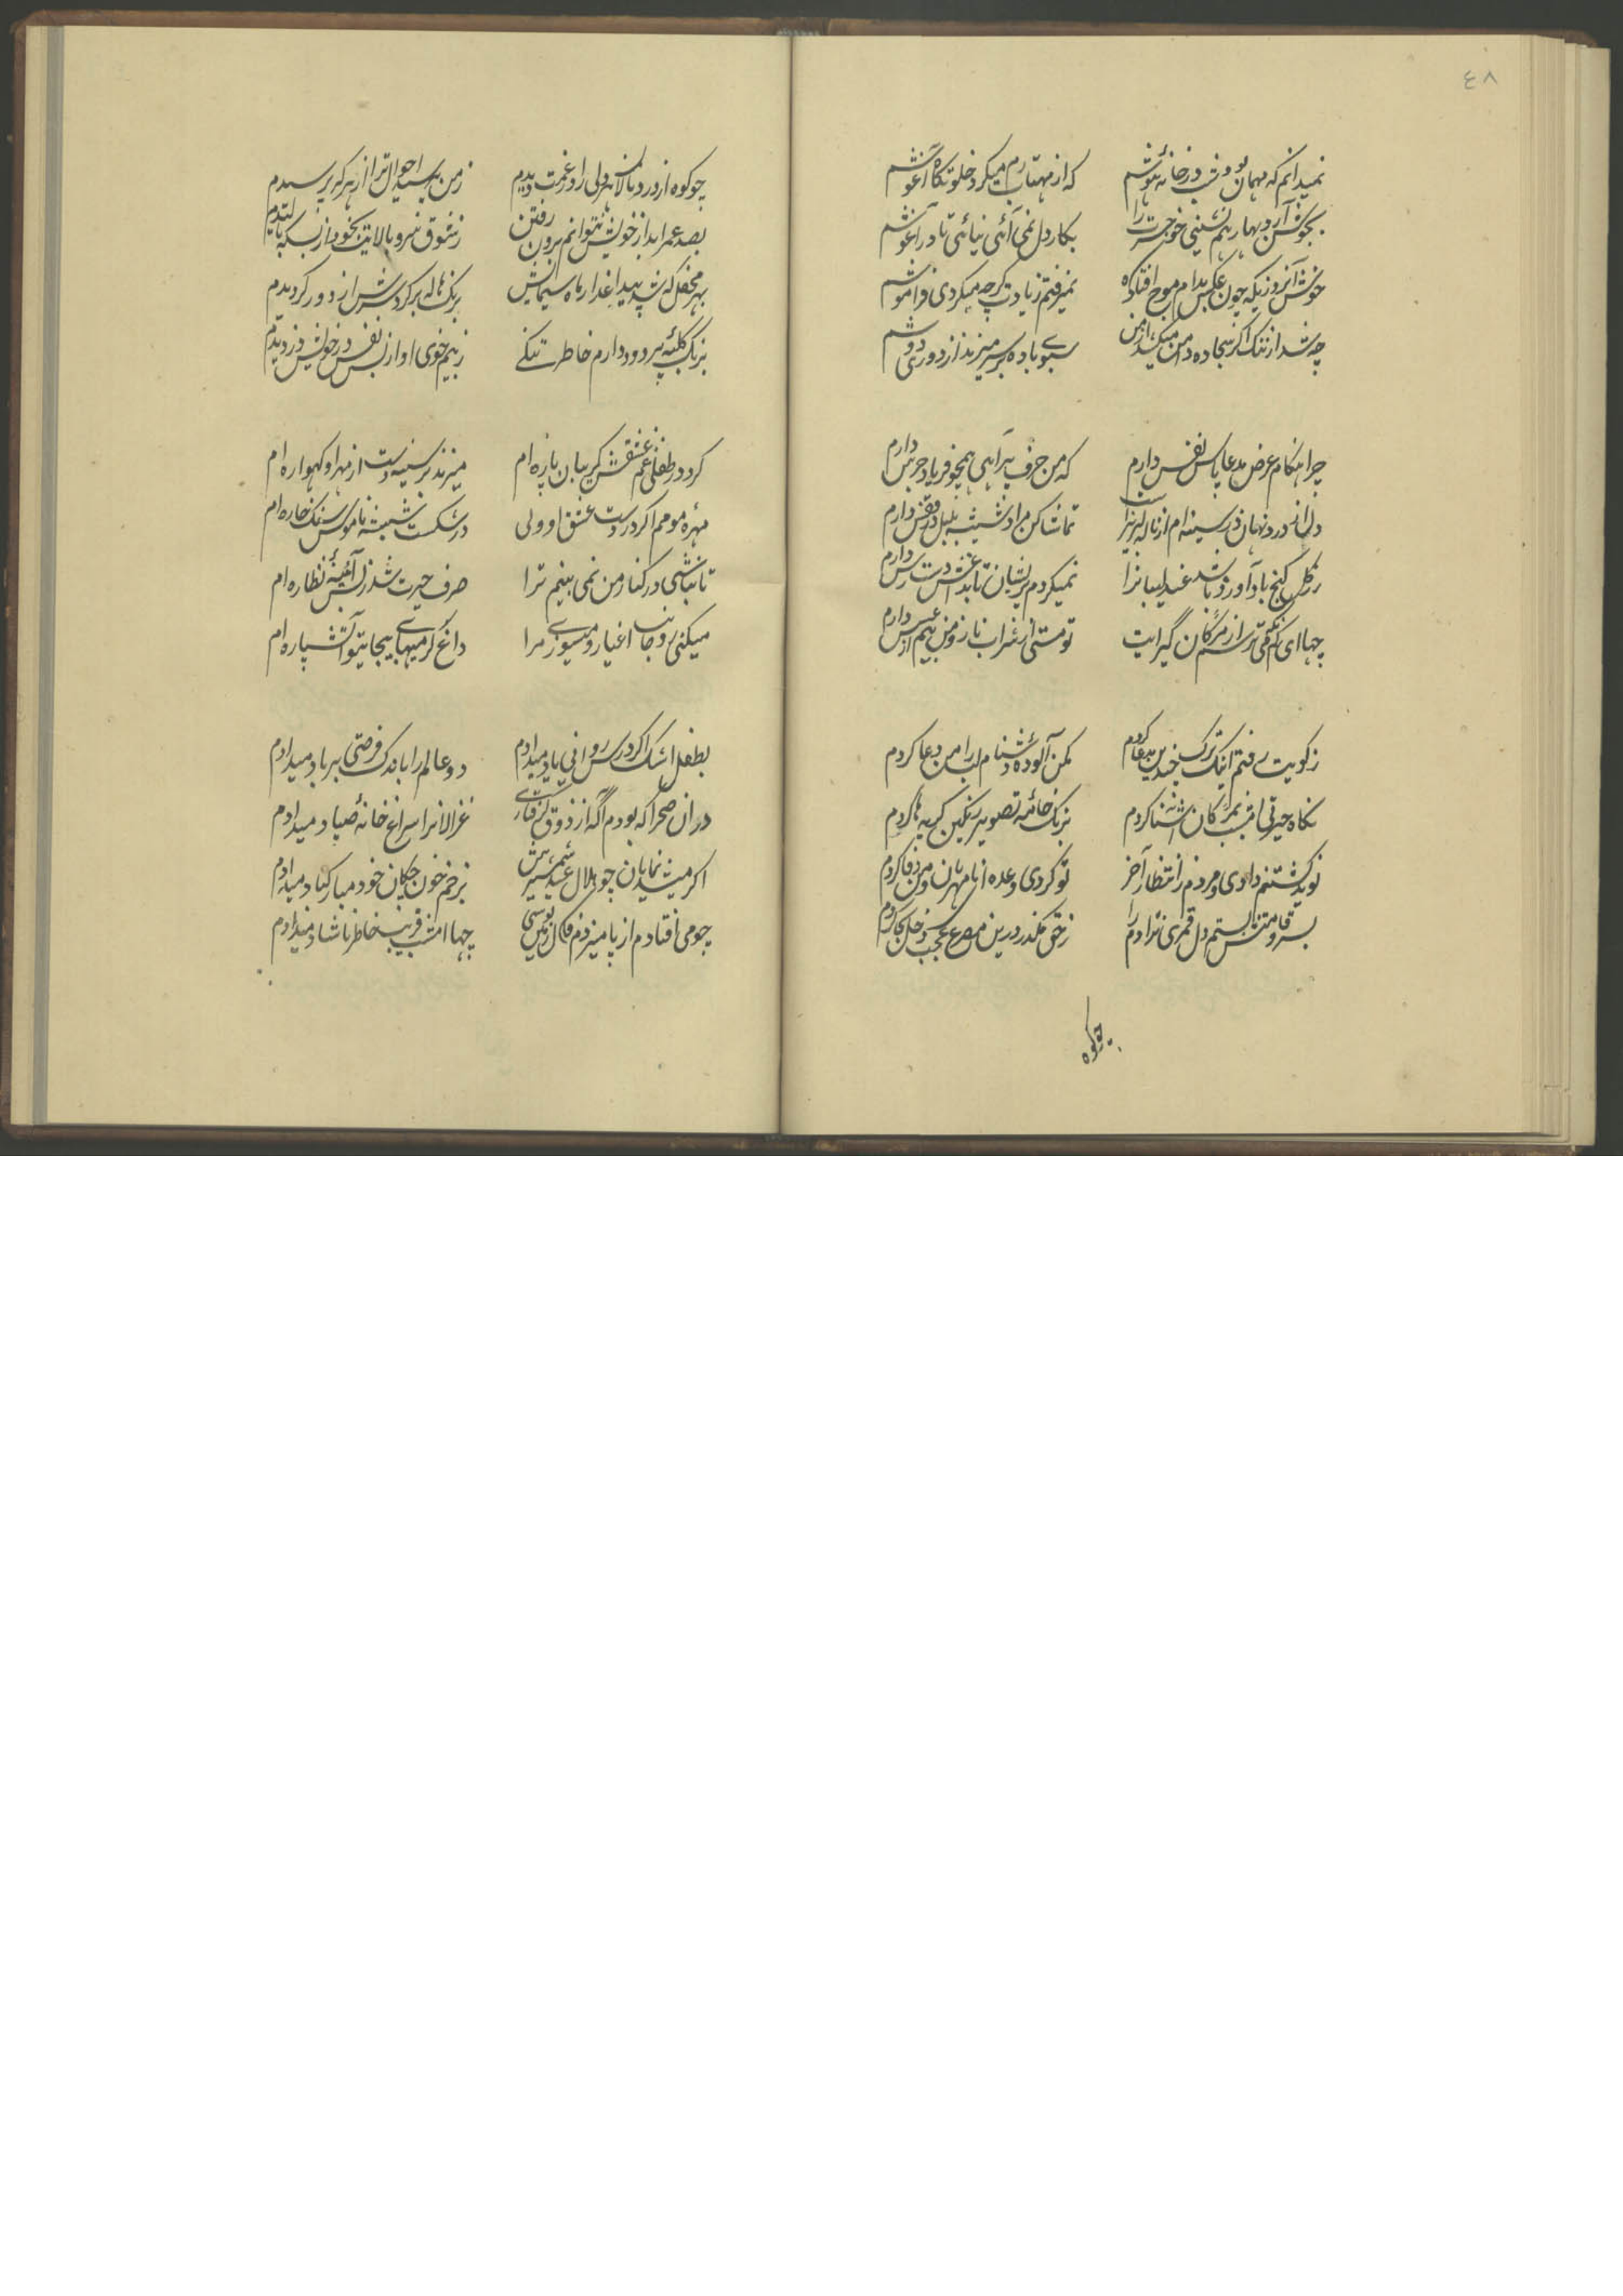 ٤٨
نمیدانم که مهمان بود شب در خانهٔ هوشم
که از مهتاب رم میکرد خلوتگاه آغوشم
بجوش آرد بهار همنشینی خون حسرت را
بکار دل نمی آئی نیائی تا در آغوشم
خوش آنروزیکه چون عکس بدام موج افتاده
نمیرفتم ز یادت گرچه میکردی فراموشم
چه شد از ننگ اگر سجاده دامن میکشد از من
سبوی باده بر سر میزند از دوری دوشم
چرا هنگام عرض مدعا پاس نفس دارم
که من حرف پر آهی همچو فریاد جرس دارم
در و نهان در سینه ام از ناله لبریز است
تماشا کن مرا در شیشه بلبل در قفس دارم
گل گنج باد آورد باشد عندلیبانرا
نمیکردم پریشان تا بدش دست رس دارم
جهای نم نگهی ترسم از مژگان گیرایت
تو مستی از شراب ناز و من بیم از عسس دارم
ز کویت رفتم اینک ترک چندین مدعا کردم
کمن آلودهٔ دشنام لب را من دعا کردم
نگاه حیرتی امشب بمژگان آشنا کردم
برنگ خامهٔ تصویر رنگین گریه ها کردم
نوید کشتنم دادی و مردم ز انتظار آخر
تو کردی وعده ای نامهربان و من وفا کردم
بسرو قامتش بستم دل قمری نژادم را
ز حق مگذر درین مصرع عجب دخل بجا کردم
چو کوه
چو کوه از درد نالان هر دلی را در غمت دیدم
ز من پرسید احوال ترا از هر که پرسیدم
بصد عمر ابد از خویش نتوانم برون رفتن
ز شوق سرو بالایت بخود از بسکه بالیدم
بهر محفل که شد پیدا عذار ماه سیمایش
برنگ هاله بر گرد سرش از دور گردیدم
برنگ کلبهٔ پر دود دارم خاطر تنگی
ز بیم خوی او از بس نفس در خویش دزدیدم
کرد در طفلی غم عشقش گریبان پاره ام
میزند بر سینه دست از مهر او گهواره ام
مهرهٔ مومم اگر در دست عشق او ولی
در شکست شیشهٔ ناموس سنگ خاره ام
تا نباشی در کنار من نمی بینم ترا
صرف حیرت شد ز بس آئینهٔ نظاره ام
میکنی رو جانب اغیار و میسوزی مرا
داغ گرمیهای بیجای تو آتشپاره ام
بطفل اشک اگر درس روانی یاد میدادم
دو عالم را باندک فرصتی بر باد میدادم
در ان صحرا که بودم آگه از ذوق گرفتاری
غزالانرا سراغ خانهٔ صیاد میدادم
اگر میشد نمایان چو هلال عید شمشیرش
بزخم خون چکان خود مبارکباد میدادم
چو می افتادم از پا میزدم فال زمین بوسی
جها امشب فریب خاطر ناشاد میدادم